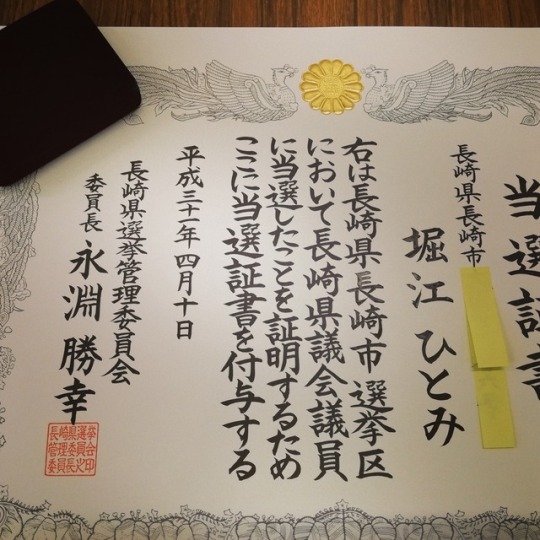 当選証書
長崎県長崎市
堀江ひとみ
右は長崎県長崎市選挙区
において長崎県議会議員
に当選したことを証明するため
ここに当選証書を付与する
平成三十一年四月十日
長崎県選挙管理委員会
委員長 永淵勝幸
長崎県選挙
管理委員会
委員長之印